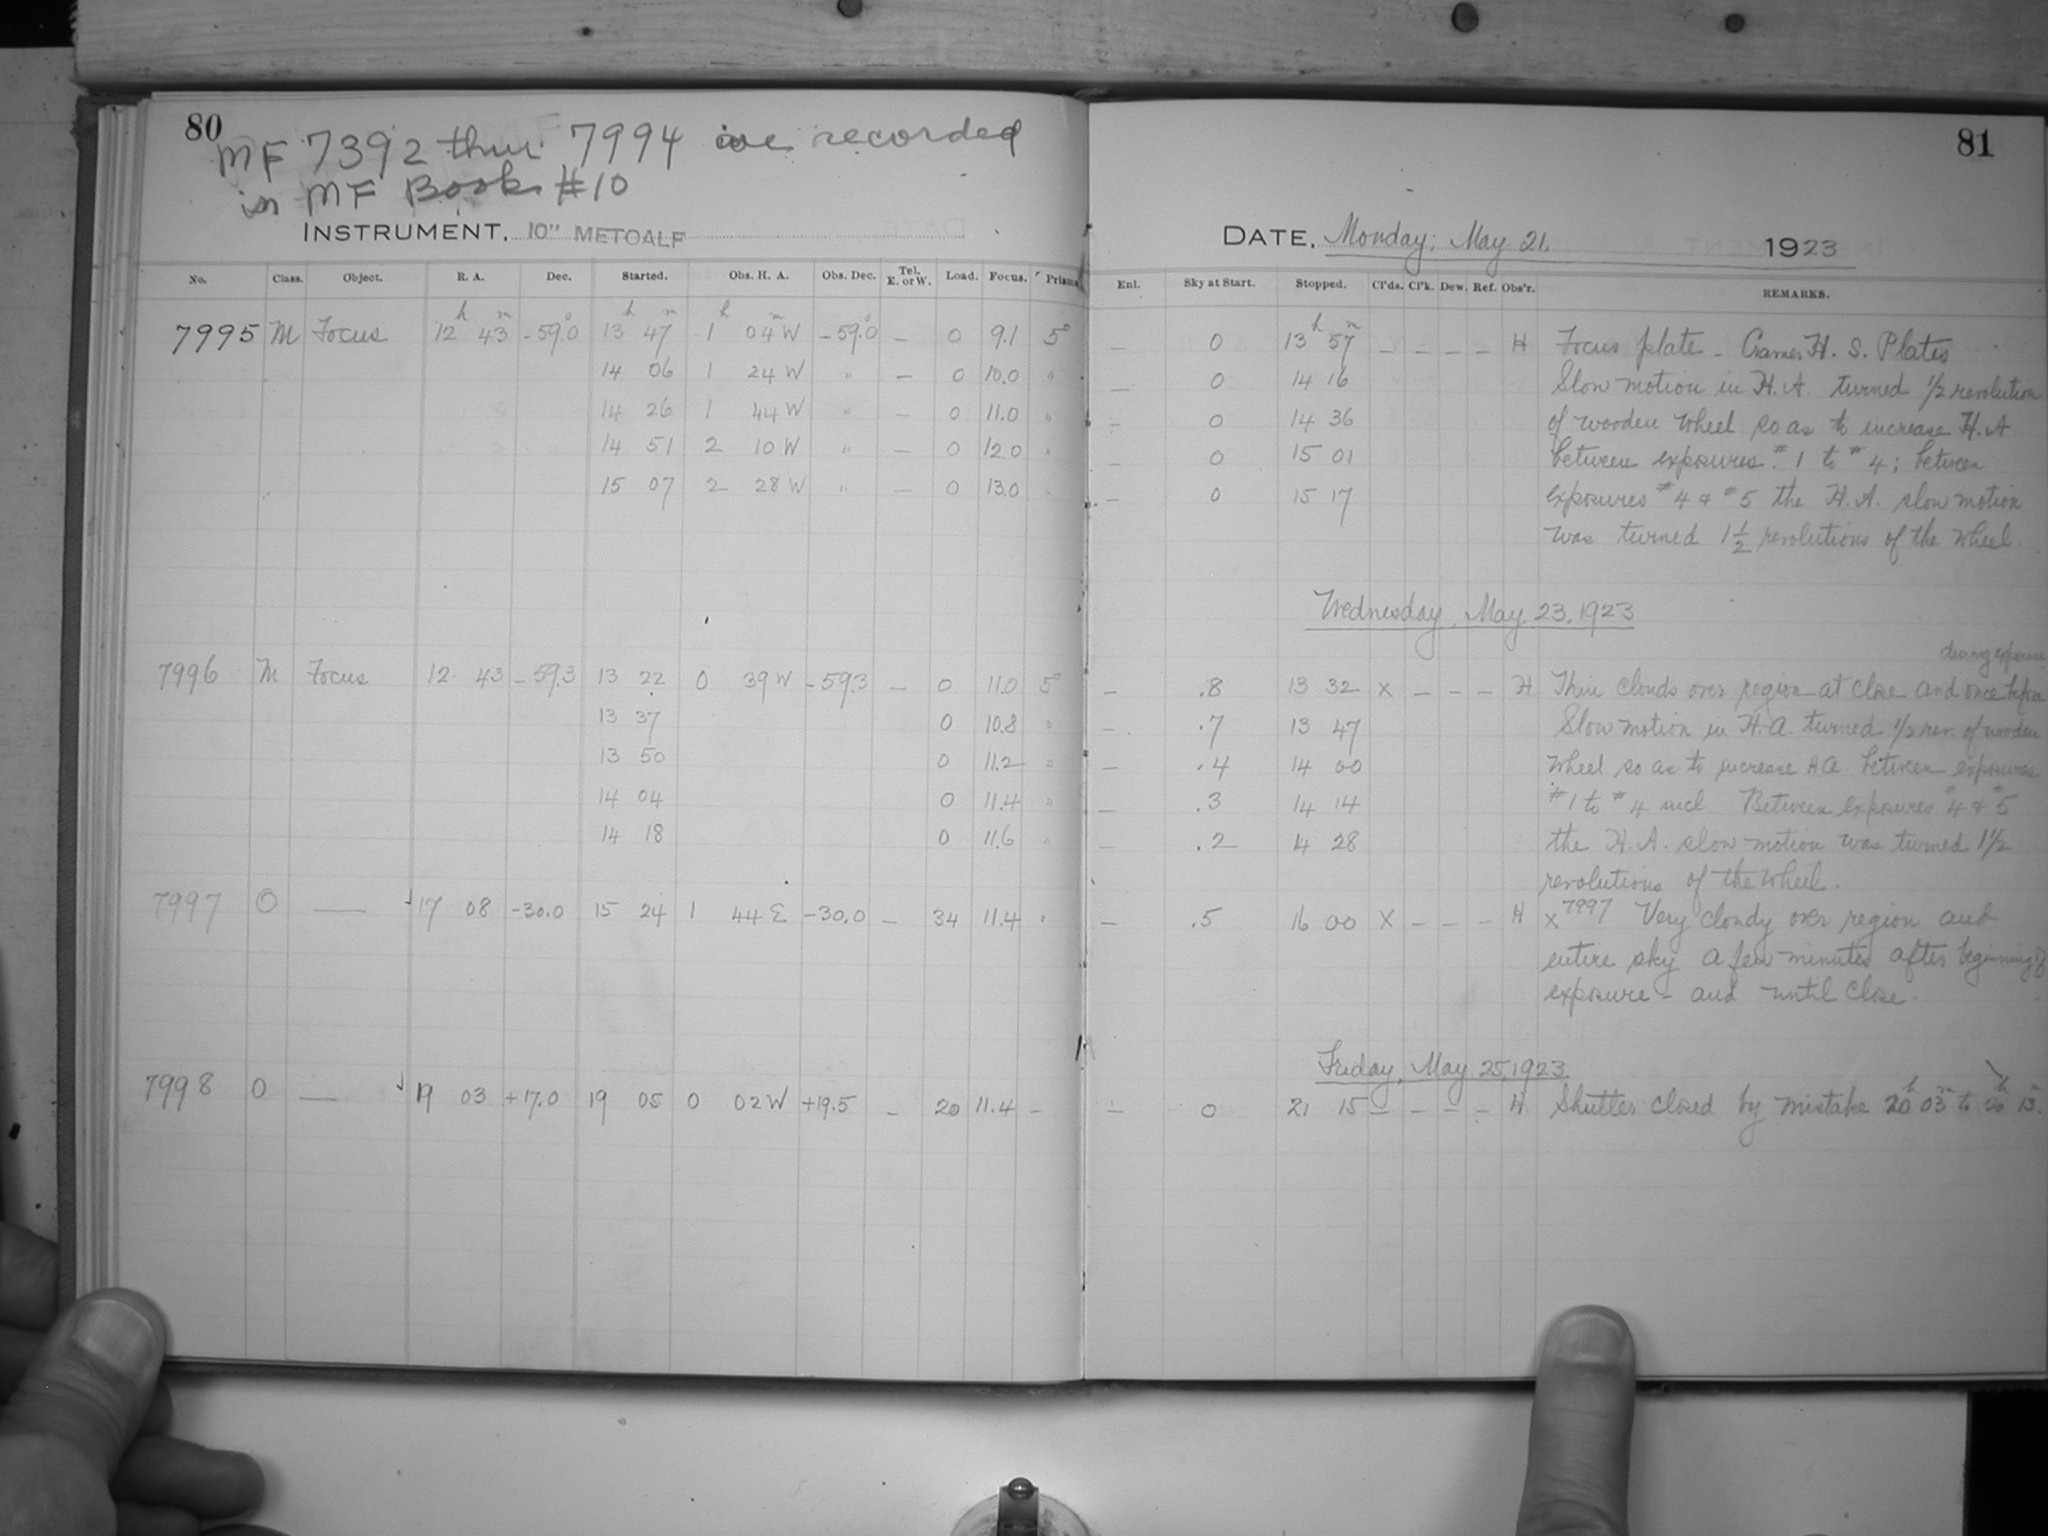 80
MF 7392 thru 7994 are recorded
in MF Book #10
INSTRUMENT, 10" METCALF
No. Class. Object. R. A. Dec. Started. Obs. H. A. Obs. Dec. Tel. E. or W. Load. Focus. Prism
7995 M Focus 12h 43m -59.°0 13h 47m 1h 04m W -59.°0 — 0 9.1 5°
14 06 1 24 W " — 0 10.0 "
14 26 1 44 W " — 0 11.0 "
14 51 2 10 W " — 0 12.0 "
15 07 2 28 W " — 0 13.0
7996 M Focus 12 43 -59.3 13 22 0 39 W -59.3 — 0 11.0 5°
13 37 0 10.8 "
13 50 0 11.2 "
14 04 0 11.4 "
14 18 0 11.6 "
7997 O — 17 08 -30.0 15 24 1 44 E -30.0 — 34 11.4
7998 O — 19 03 +17.0 19 05 0 02 W +19.5 — 20 11.4 —
81
DATE, Monday, May 21. 1923
Enl. Sky at Start. Stopped. Cl'ds. Cl'k. Dew. Ref. Obs'r. REMARKS.
— 0 13h 57m — — — — H Focus plate - Cramer H. S. Plates
— 0 14 16 Slow motion in H.A. turned 1/2 revolution
— 0 14 36 of wooden wheel so as to increase H.A
— 0 15 01 between exposures #1 to #4; between
— 0 15 17 exposures #4 & #5 the H.A. slow motion
was turned 1 1/2 revolutions of the wheel
Wednesday, May 23, 1923
during exposure
— .8 13 32 x — — — H Thin clouds over region at close and once before
— .7 13 47 Slow motion in H.A. turned 1/2 rev. of wooden
— .4 14 00 wheel so as to increase HA between exposures
— .3 14 14 #1 to #4 incl Between exposures #4 & #5
— .2 14 28 the H.A. slow motion was turned 1 1/2
revolutions of the wheel.
— .5 16 00 x — — — H x 7997 Very cloudy over region and
entire sky a few minutes after beginning of
exposure - and until close.
Friday, May 25, 1923
— 0 21 15 — — — — H Shutter closed by mistake 20h 03m to 20h 13m.